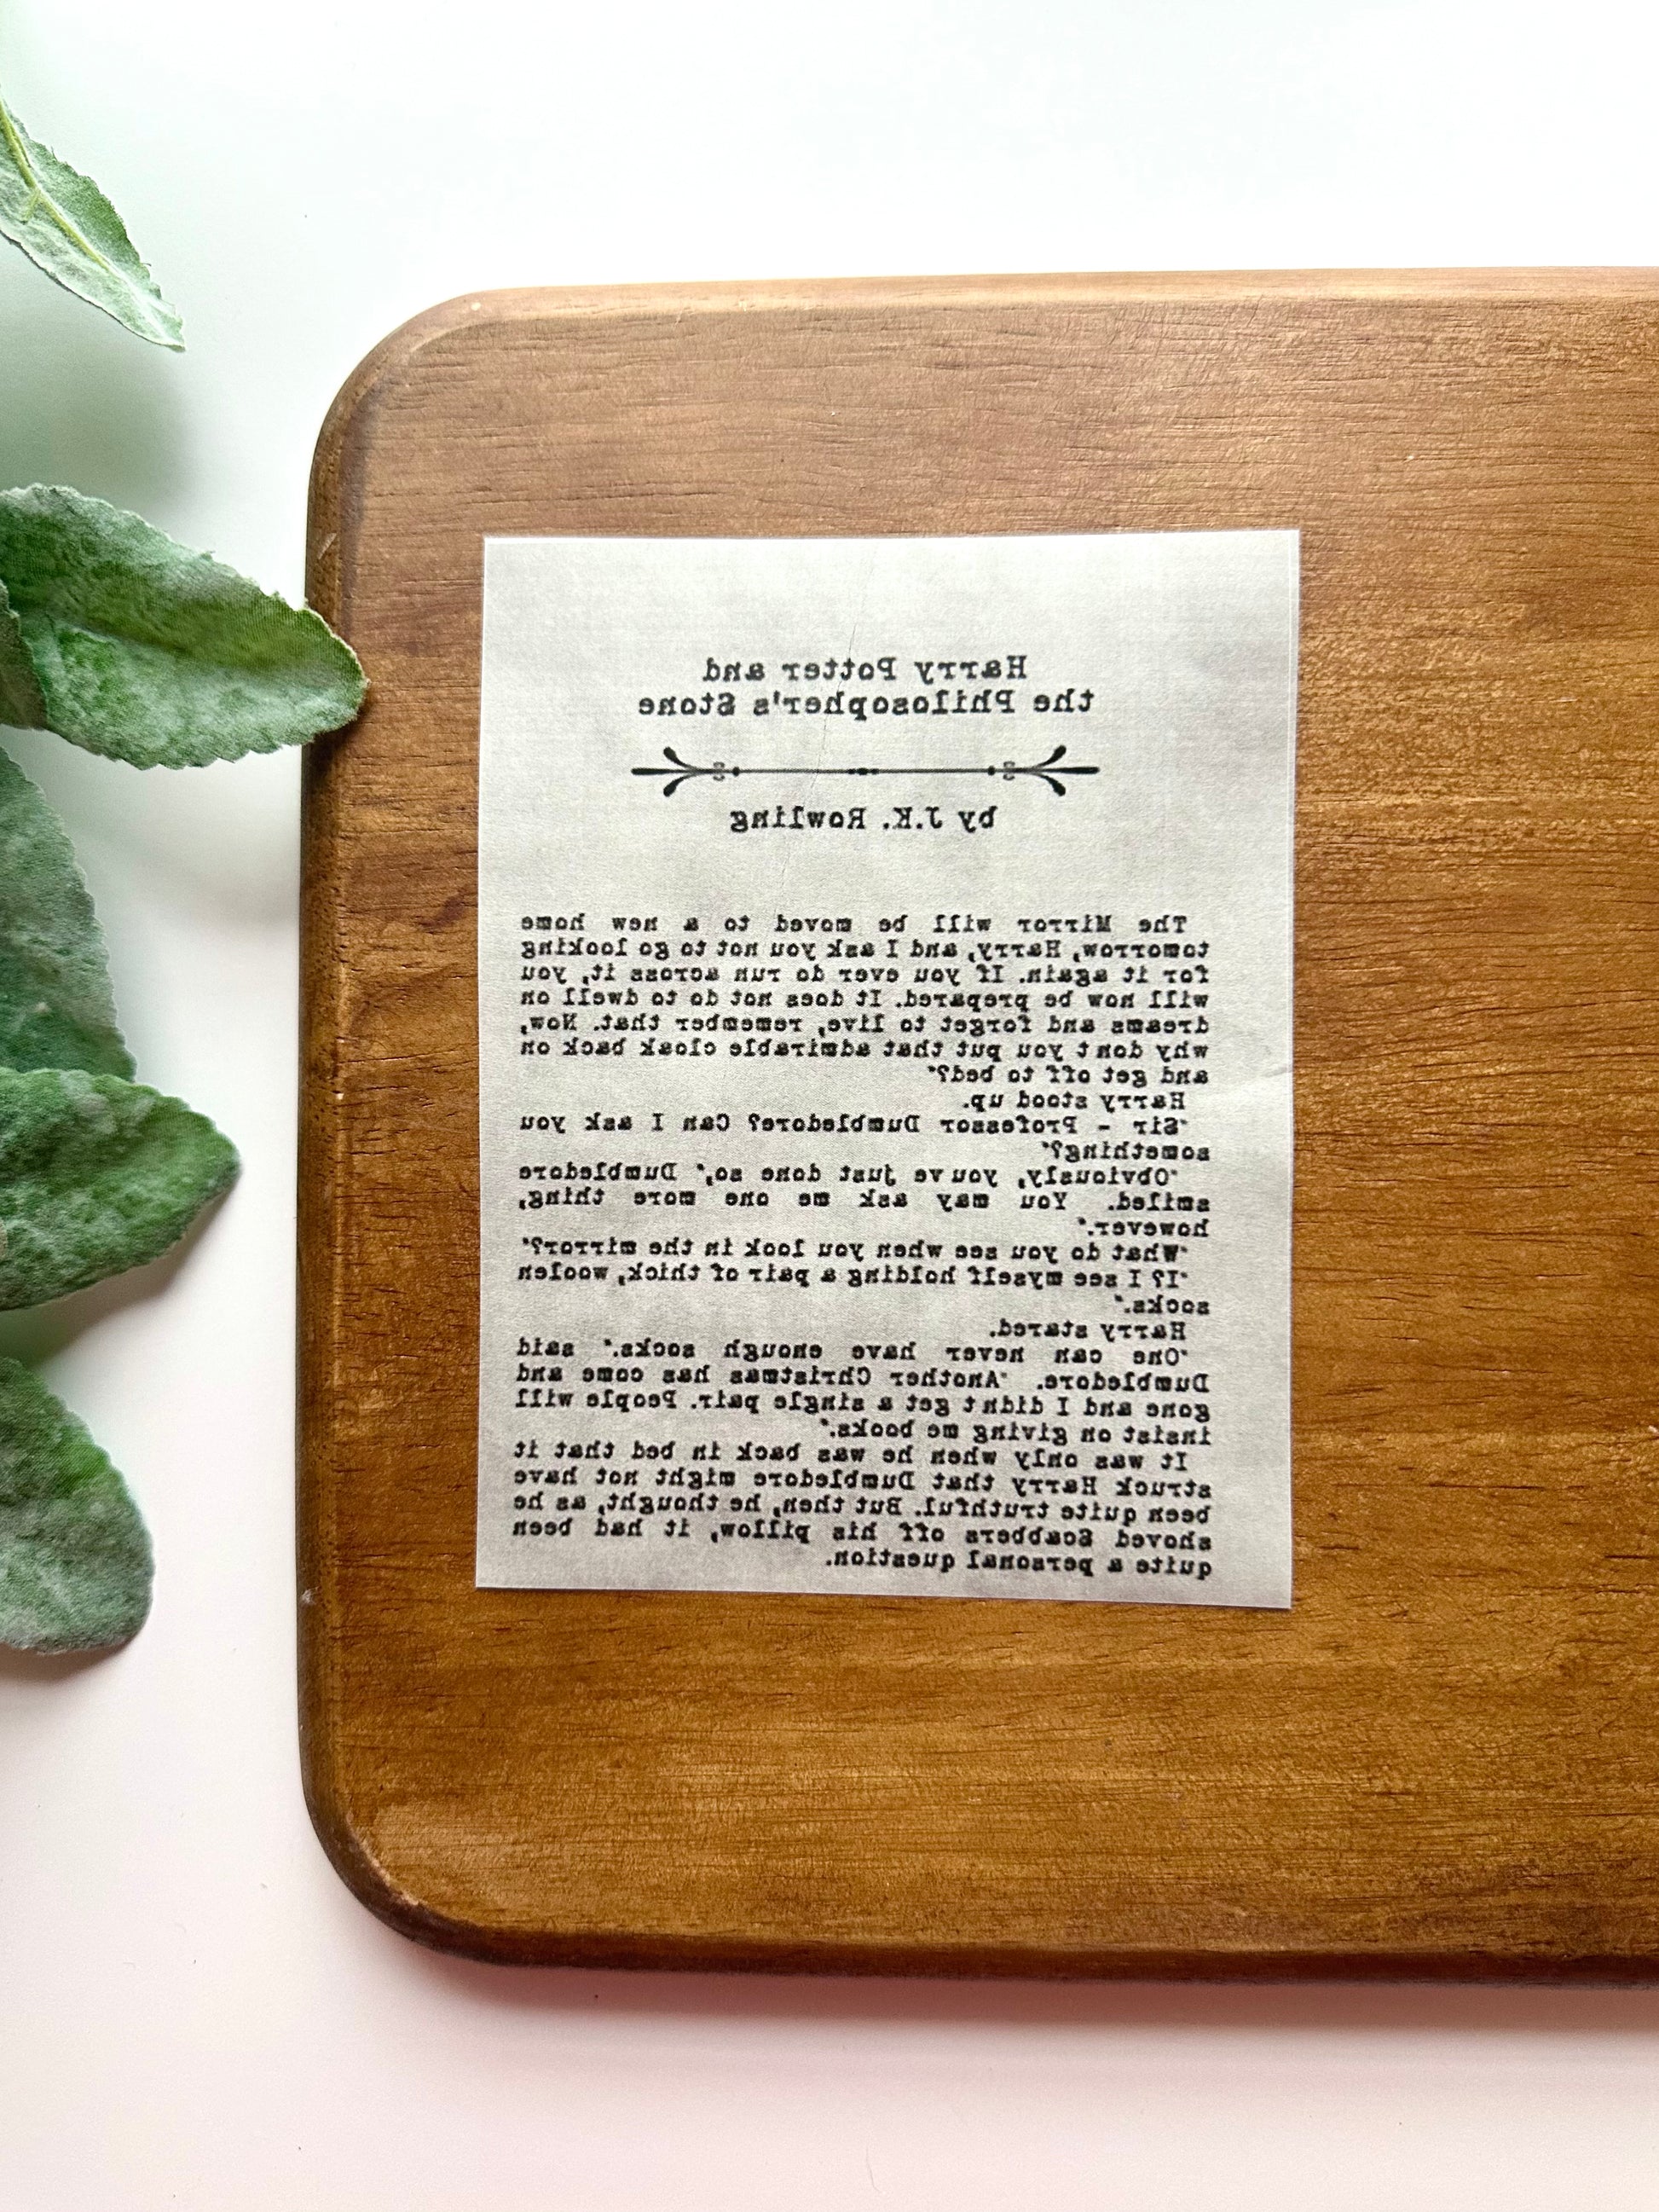 Harry Potter and
the Philosopher's Stone
by J.K. Rowling
The Mirror will be moved to a new home
tomorrow, Harry, and I ask you not to go looking
for it again. If you ever do run across it, you
will now be prepared. It does not do to dwell on
dreams and forget to live, remember that. Now,
why don't you put that admirable cloak back on
and get off to bed?'
Harry stood up.
'Sir - Professor Dumbledore? Can I ask you
something?'
'Obviously, you've just done so,' Dumbledore
smiled. 'You may ask me one more thing,
however.'
'What do you see when you look in the mirror?'
'I? I see myself holding a pair of thick, woolen
socks.'
Harry stared.
'One can never have enough socks.' said
Dumbledore. 'Another Christmas has come and
gone and I didn't get a single pair. People will
insist on giving me books.'
It was only when he was back in bed that it
struck Harry that Dumbledore might not have
been quite truthful. But then, he thought, as he
shoved Scabbers off his pillow, it had been
quite a personal question.